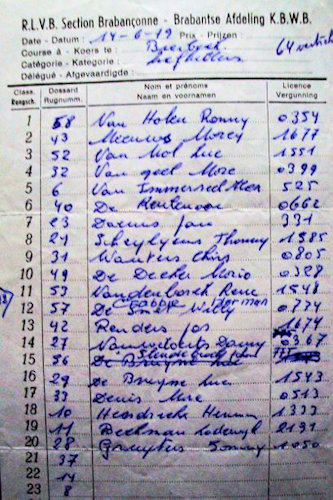 R.L.V.B. Section Brabançonne - Brabantse Afdeling K.B.W.B.
Date - Datum : 14-6-79 Prix - Prijzen :
Course à - Koers te : 64 vertrek
Catégorie - Kategorie : Liefhebbers
Délégué - Afgevaardigde :
Class. Rangsch. Dossard Rugnumm. Nom et prénoms Naam en voornamen Licence Vergunning
1 58 Van Holen Ronny 0354
2 43 Meeuws Marcy 1677
3 52 Van Mol Luc 1551
4 32 Van Geel Marc 0399
5 6 Van Immerseel 525
6 40 De 0662
7 23 Daems Jan 331
8 21 Thonny 1585
9 31 Wauters Chris 0805
10 49 De Decker Mario 0328
11 53 Vandenbosch Rene 1548
12 57 De Smet Willy Herman 0774
13 42 Renders Jos 1674
14 27 Danny 0367
15 56 De Bruyne
16 29 De Bruyne Luc 1543
17 33 Denis Marc 0513
18 10 Hendrickx Herman 1333
19 11 Beelman Lodewyk 2131
20 28 Gruyters Tommy 1050
21 37
22 14
23 8